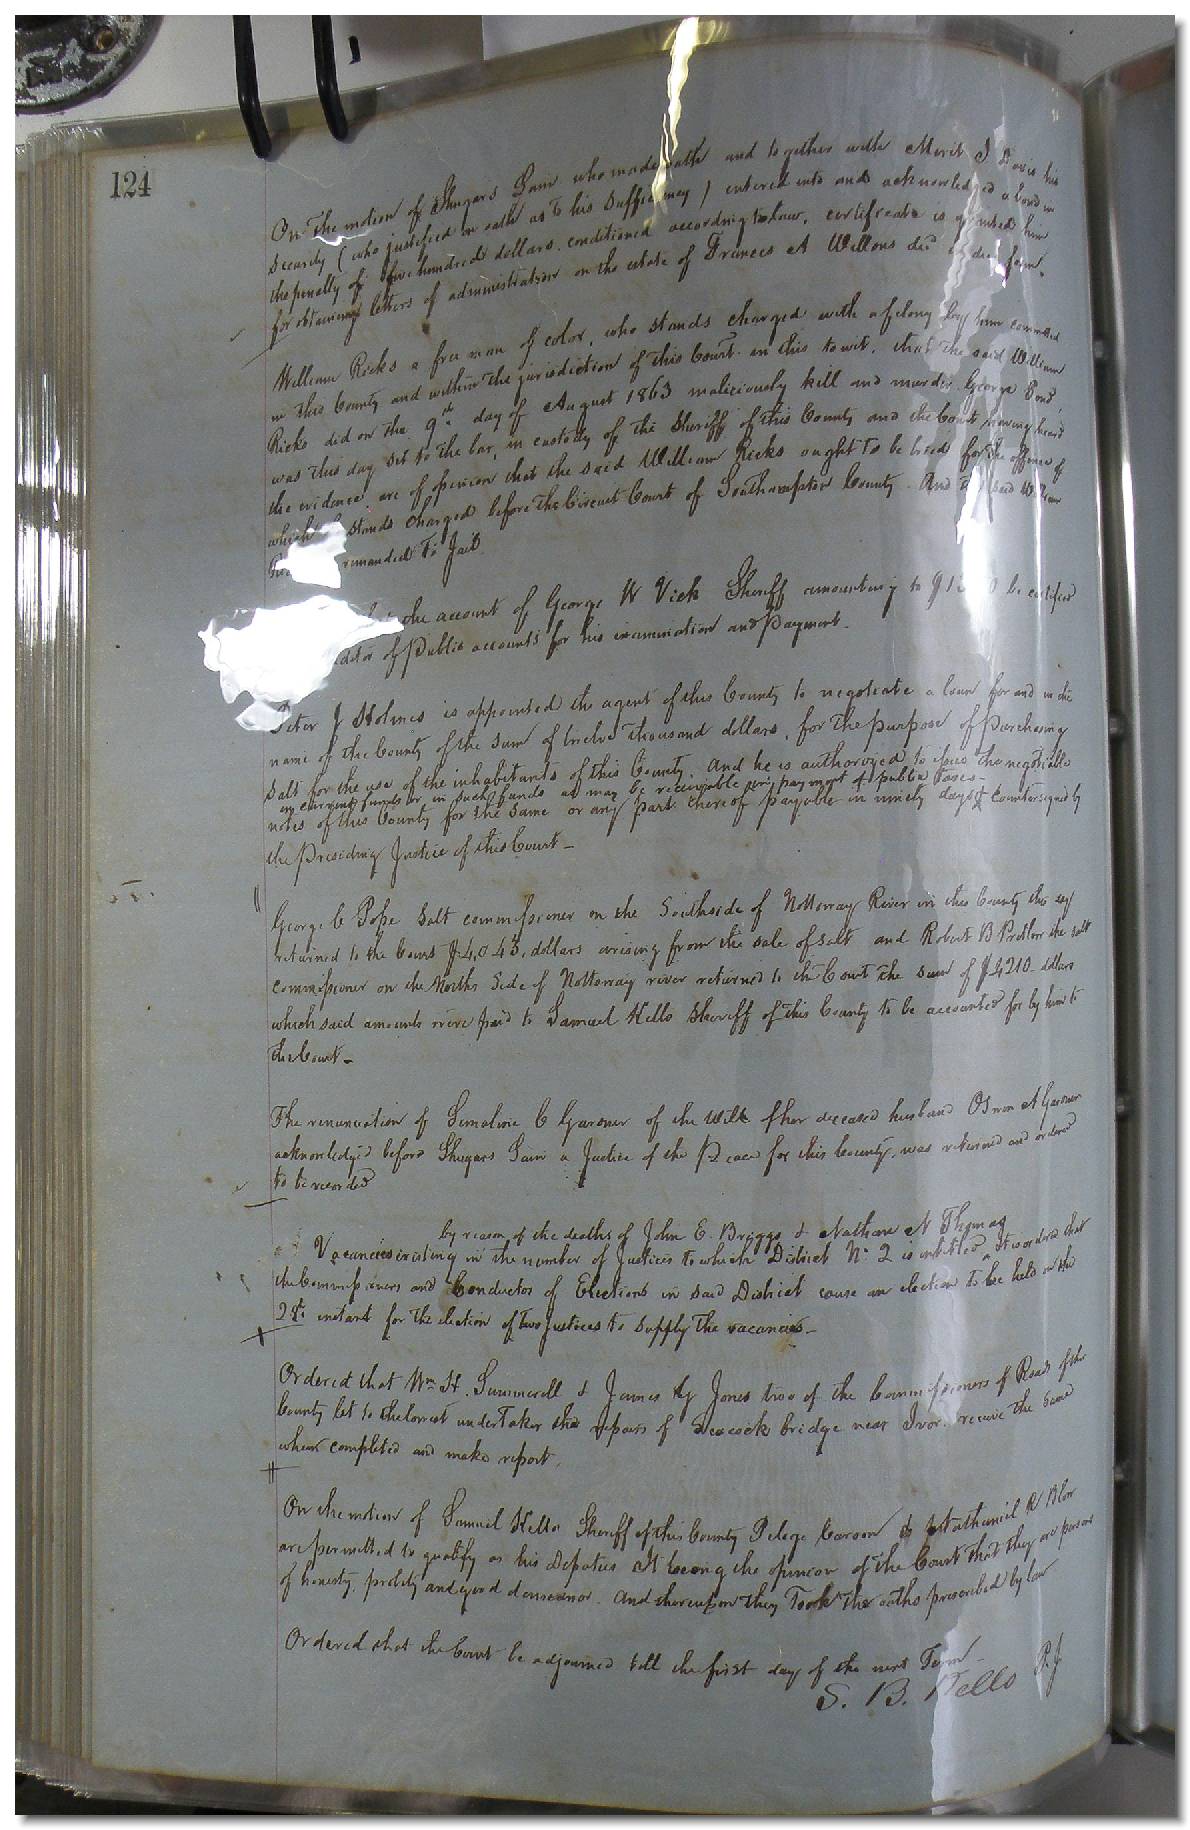 124
On the motion of Shugars Gain who made oath and together with Merit J Davis his
security (who justified on oath as to his sufficiency) entered into and acknowledged a bond in
the penalty of five hundred dollars. conditioned according to law, certificate is granted him
for obtaining letters of administration on the estate of Frances A decd in due form.
William Ricks a free man of color, who stands charged with a felony by him commited
in this County and within the jurisdiction of this Court. in this to wit, that the said William
Ricks did on the 9th day of August 1863 maliciously kill and murder George
was this day set to the bar, in custody of the Sheriff of this County and the Court having heard
the evidence are of opinion that the said William Ricks ought to be tried for the offence of
which stands charged before the Circuit Court of Southampton County. And the said William
remanded to Jail
the account of George W Vick Sheriff amounting to be certified
of public accounts for his examination and payment.
Peter J Holmes is appointed the agent of this County to negotiate a loan for and in the
name of the County of the sum of twelve thousand dollars, for the purpose of purchasing
salt for the use of the inhabitants of this County. And he is authorized to issue the negotiable
in current funds or in such funds as may be receivable in payment of public taxes
notes of this County for the same or any part thereof payable in ninety days & countersigned by
the Presiding Justice of this Court -
George C Pope Salt commissioner on the Southside of Nottoway River in this County this day
returned to the Court $4,043, dollars arising from the sale of salt and Robert B the salt
commissioner on the North Side of Nottoway river returned to the Court the sum of $4210 dollars
which said amounts were paid to Samuel Kello Sheriff of this County to be accounted for by him to
the Court -
The renunciation of C Gardner of the will of her deceased husband A Gardner
acknowledged before Shugars Gain a Justice of the Peace for this County, was returned and ordered
to be recorded
by reason of the deaths of John E. Briggs & Nathan N Thomas
Vacancies existing in the number of Justices to which District No 2 is entitled, it is ordered that
the Commissioners and Conductor of Elections in said District cause an election to be held on the
instant for the election of two justices to supply the vacancies -
Ordered that Wm H. Summerell & James Jones two of the Commissioners of Roads of the
County let to the lowest undertaker the repairs of Peacock bridge near Ivor. receive the same
when completed and make report.
On the motion of Samuel Kello Sheriff of this County Pelege Carson & Nathaniel R Blow
are permitted to qualify as his Deputies It being the opinion of the Court that they are persons
of honesty, probity and good demeanor. And thereupon they Took the oaths prescribed by law
Ordered that the Court be adjourned till the first day of the next Term -
S. B. Kello P. J.